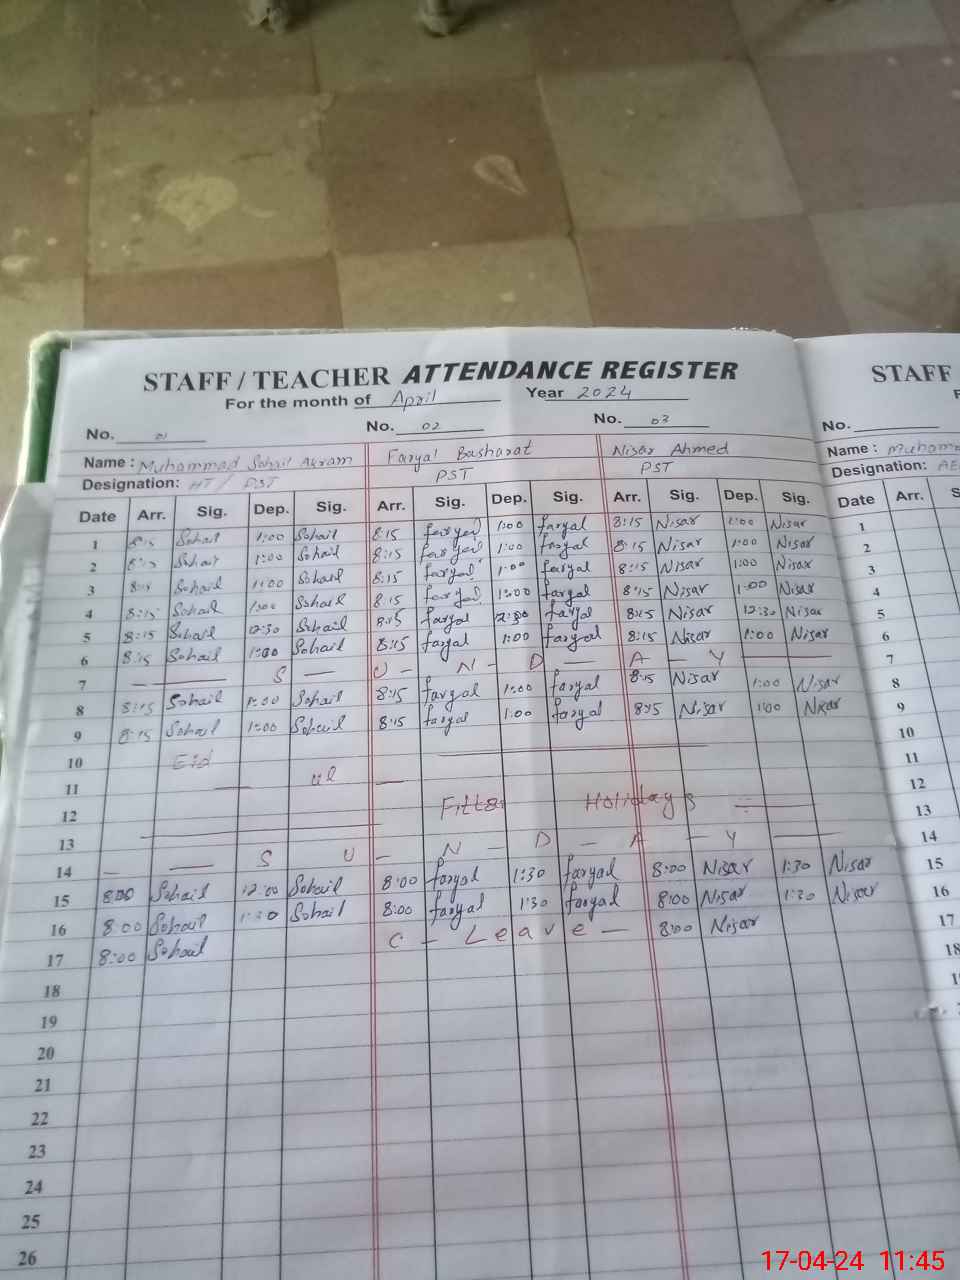 STAFF / TEACHER ATTENDANCE REGISTER
For the month of April Year 2024
No. 01 No. 02 No. 03
Name : Muhammad Sohail Akram Faryal Basharat Nisar Ahmed
Designation: HT / PST PST PST
Date Arr. Sig. Dep. Sig. Arr. Sig. Dep. Sig. Arr. Sig. Dep. Sig.
1 8:15 Sohail 1:00 Sohail 8:15 faryal 1:00 faryal 8:15 Nisar 1:00 Nisar
2 8:15 Sohail 1:00 Sohail 8:15 faryal 1:00 faryal 8:15 Nisar 1:00 Nisar
3 8:15 Sohail 1:00 Sohail 8:15 faryal 1:00 faryal 8:15 Nisar 1:00 Nisar
4 8:15 Sohail 1:00 Sohail 8:15 faryal 1:00 faryal 8:15 Nisar 1:00 Nisar
5 8:15 Sohail 12:30 Sohail 8:15 faryal 12:30 faryal 8:15 Nisar 12:30 Nisar
6 8:15 Sohail 1:00 Sohail 8:15 faryal 1:00 faryal 8:15 Nisar 1:00 Nisar
7 — S — U - N - D — A — Y —
8 8:15 Sohail 1:00 Sohail 8:15 faryal 1:00 faryal 8:15 Nisar 1:00 Nisar
9 8:15 Sohail 1:00 Sohail 8:15 faryal 1:00 faryal 8:15 Nisar 1:00 Nisar
10 Eid
11 — ul —
12 Fitter Holidays
13
14 — — S U - N - D — A — Y —
15 8:00 Sohail 12:00 Sohail 8:00 faryal 1:30 faryal 8:00 Nisar 1:30 Nisar
16 8:00 Sohail 1:30 Sohail 8:00 faryal 1:30 faryal 8:00 Nisar 1:30 Nisar
17 8:00 Sohail C - Leave - 8:00 Nisar
18
19
20
21
22
23
24
25
26
STAFF
No.
Name : Muham
Designation:
Date Arr.
1
2
3
4
5
6
7
8
9
10
11
12
13
14
15
16
17
18
17-04-24 11:45